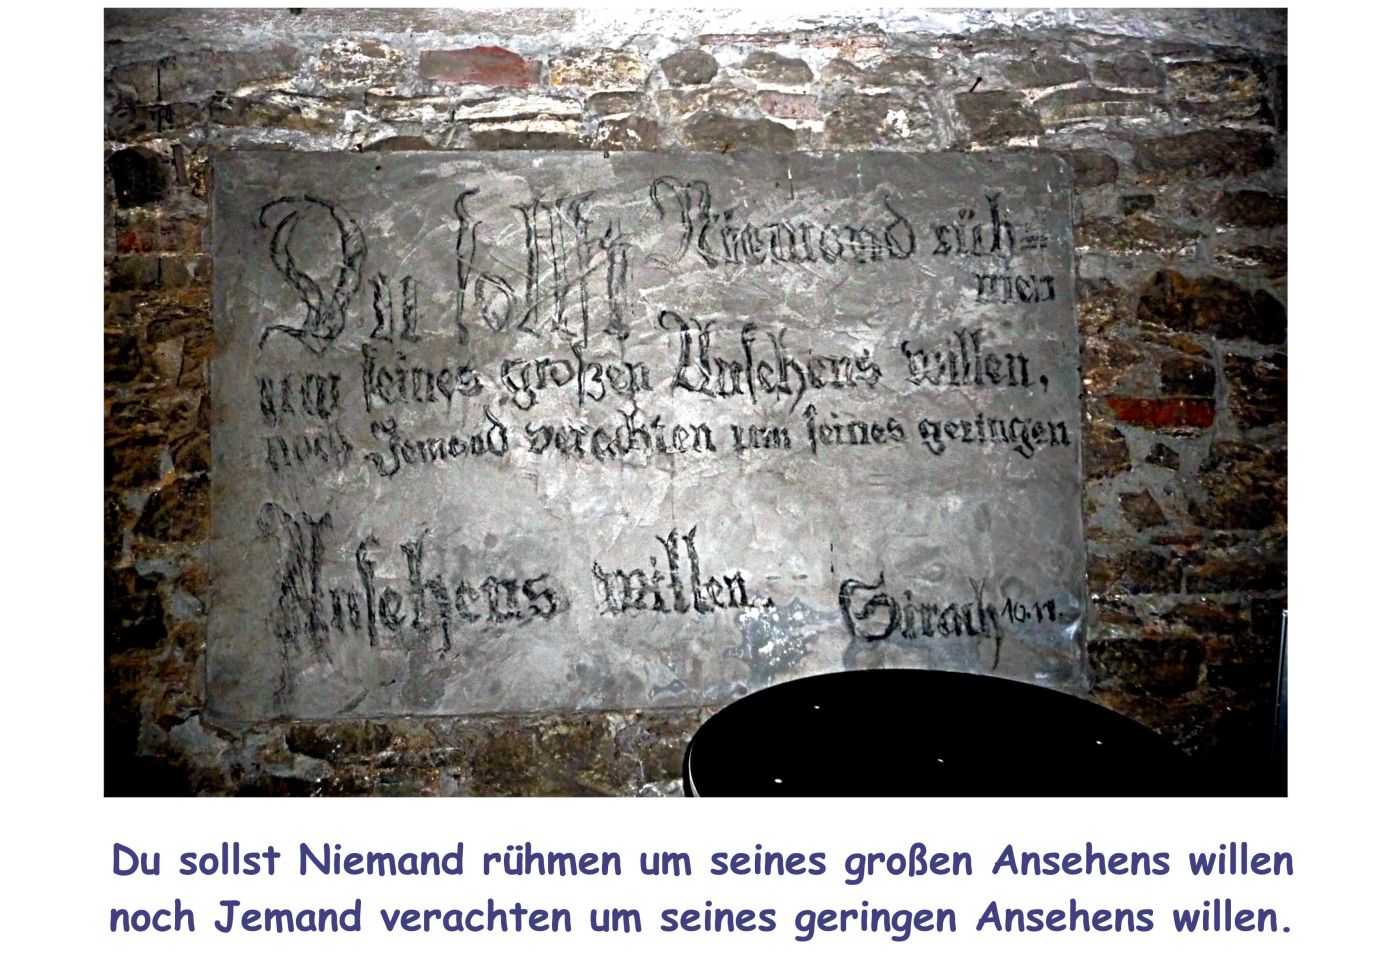 Du sollst Niemand rüh=
men
um seines großen Ansehens willen,
noch Jemand verachten um seines geringen
Ansehens willen.
Sirach 10.11.
Du sollst Niemand rühmen um seines großen Ansehens willen
noch Jemand verachten um seines geringen Ansehens willen.